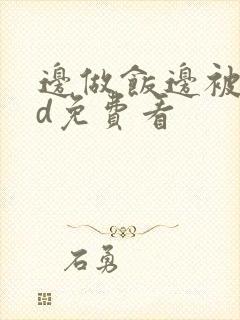 邊做飯邊被
d免費看
石勇